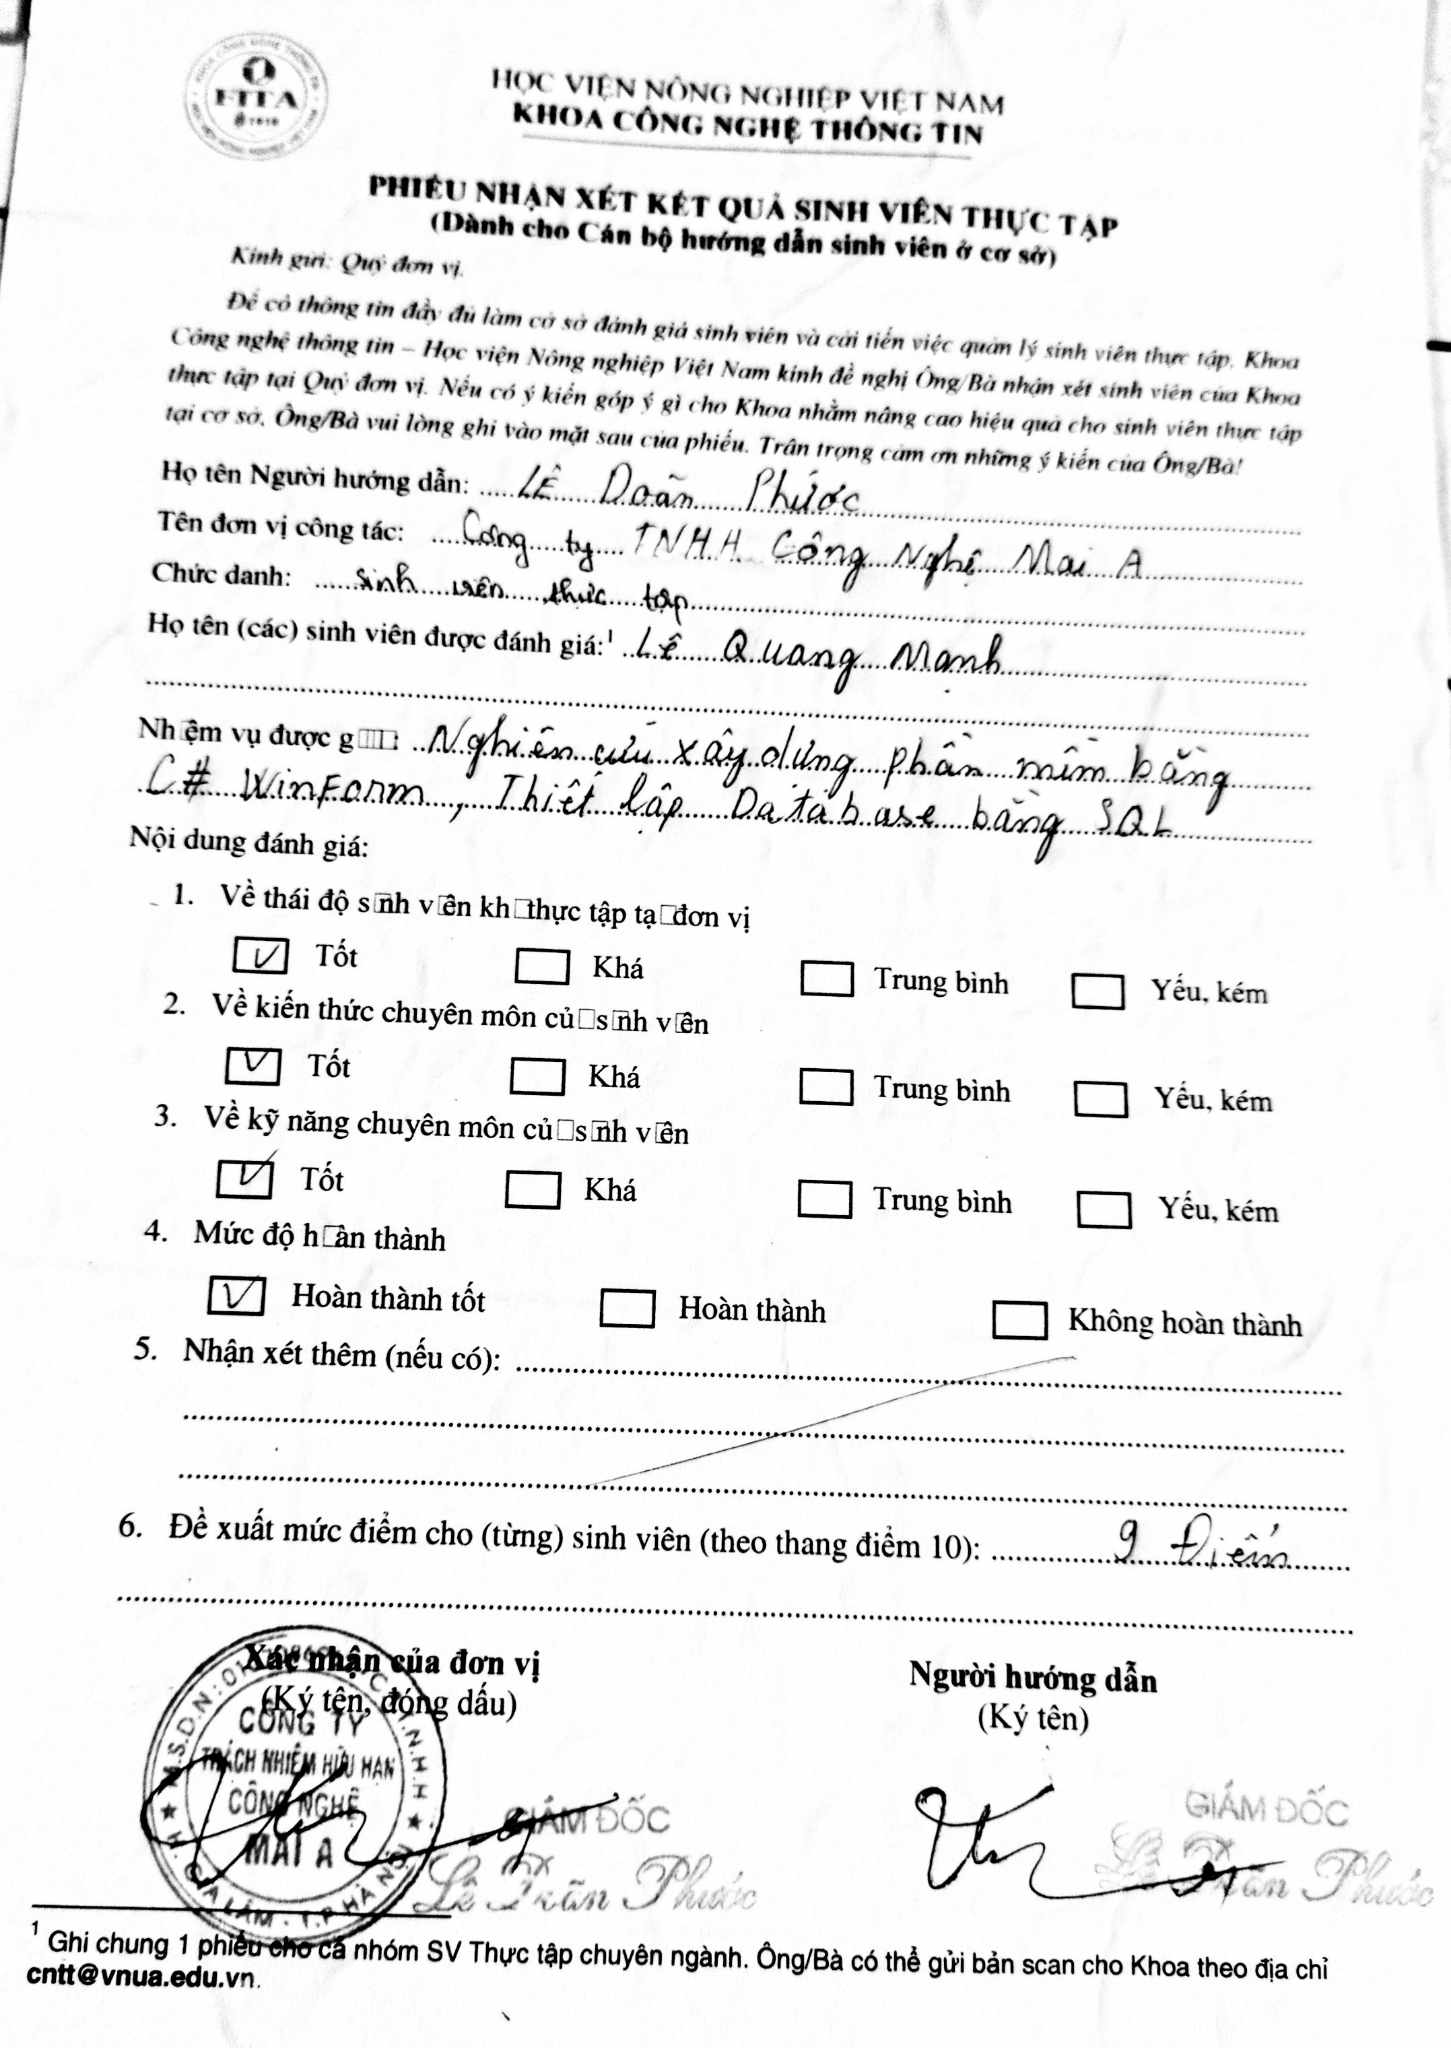 FITA
HỌC VIỆN NÔNG NGHIỆP VIỆT NAM
KHOA CÔNG NGHỆ THÔNG TIN
PHIẾU NHẬN XÉT KẾT QUẢ SINH VIÊN THỰC TẬP
(Dành cho Cán bộ hướng dẫn sinh viên ở cơ sở)
Kính gửi: Quý đơn vị.
Để có thông tin đầy đủ làm cơ sở đánh giá sinh viên và cải tiến việc quản lý sinh viên thực tập, Khoa
Công nghệ thông tin – Học viện Nông nghiệp Việt Nam kính đề nghị Ông/Bà nhận xét sinh viên của Khoa
thực tập tại Quý đơn vị. Nếu có ý kiến góp ý gì cho Khoa nhằm nâng cao hiệu quả cho sinh viên thực tập
tại cơ sở, Ông/Bà vui lòng ghi vào mặt sau của phiếu. Trân trọng cảm ơn những ý kiến của Ông/Bà!
Họ tên Người hướng dẫn: Lê Doãn Phước
Tên đơn vị công tác: Công ty TNHH Công Nghệ Mai A
Chức danh: sinh viên thực tập
Họ tên (các) sinh viên được đánh giá:¹ Lê Quang Mạnh
Nh□ệm vụ được g□□□: Nghiên cứu xây dựng phần mềm bằng
C# WinForm, Thiết lập Database bằng SQL
Nội dung đánh giá:
1. Về thái độ s□nh v□ên kh□ thực tập tạ□ đơn vị
Tốt Khá Trung bình Yếu, kém
2. Về kiến thức chuyên môn củ□ s□nh v□ên
Tốt Khá Trung bình Yếu, kém
3. Về kỹ năng chuyên môn củ□ s□nh v□ên
Tốt Khá Trung bình Yếu, kém
4. Mức độ h□àn thành
Hoàn thành tốt Hoàn thành Không hoàn thành
5. Nhận xét thêm (nếu có):
6. Đề xuất mức điểm cho (từng) sinh viên (theo thang điểm 10): 9 Điểm
Xác nhận của đơn vị
(Ký tên, đóng dấu)
Người hướng dẫn
(Ký tên)
CÔNG TY
TRÁCH NHIỆM HỮU HẠN
CÔNG NGHỆ
MAI A
H. GIA LÂM - T.P HÀ NỘI
GIÁM ĐỐC
Lê Trần Phước
GIÁM ĐỐC
Lê Trần Phước
¹ Ghi chung 1 phiếu cho cả nhóm SV Thực tập chuyên ngành. Ông/Bà có thể gửi bản scan cho Khoa theo địa chỉ
cntt@vnua.edu.vn.